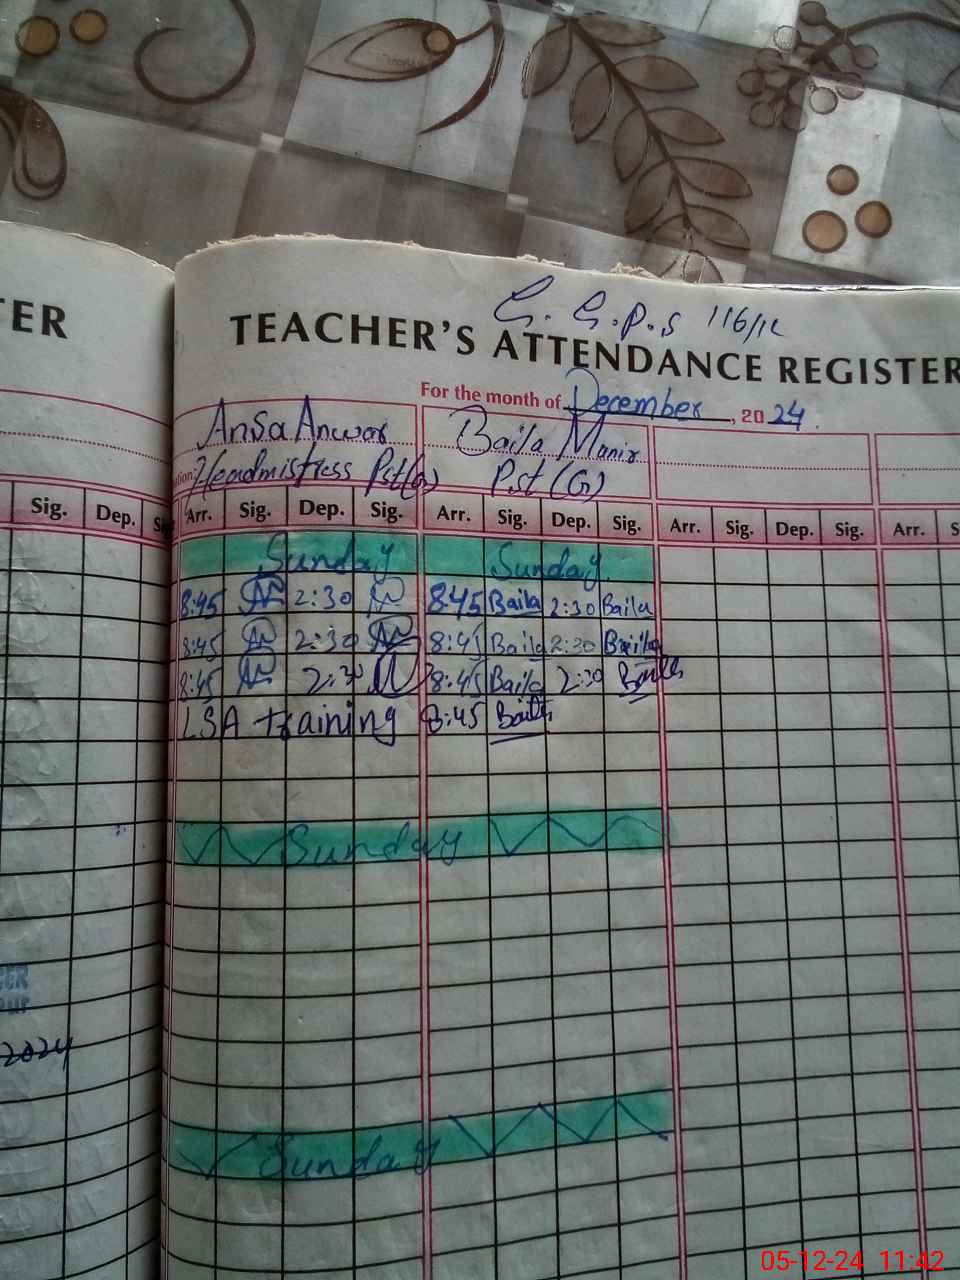 TER
G. G. P. S 116/12
TEACHER'S ATTENDANCE REGISTER
For the month of December, 2024.
Ansa Anwar Baila Manir
Headmistress Pst(G) Pst (G)
Sig. Dep. Arr. Sig. Dep. Sig. Arr. Sig. Dep. Sig. Arr. Sig. Dep. Sig. Arr.
Sunday Sunday
8:45 2:30 845 Baila 2:30 Baila
8:45 2:30 8:45 Baila 2:30 Baila
8:45 2:30 8:45 Baila 2:30 Baila
LSA training 8:45 Baila
Sunday
2024
Sunday
05-12-24 11:42